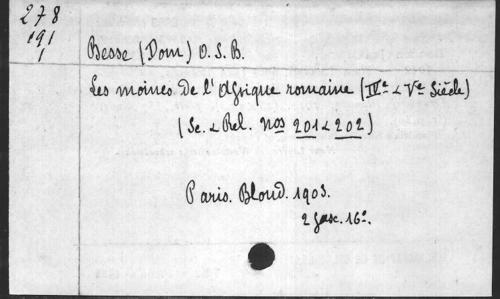 278
191
1
Besse (Dom) O. S. B.
Les moines de l'Afrique romaine (IVe & Ve Siècle)
(Sc. & Rel. Nos 201 & 202)
Paris. Bloud. 1903.
2 fasc. 16o.